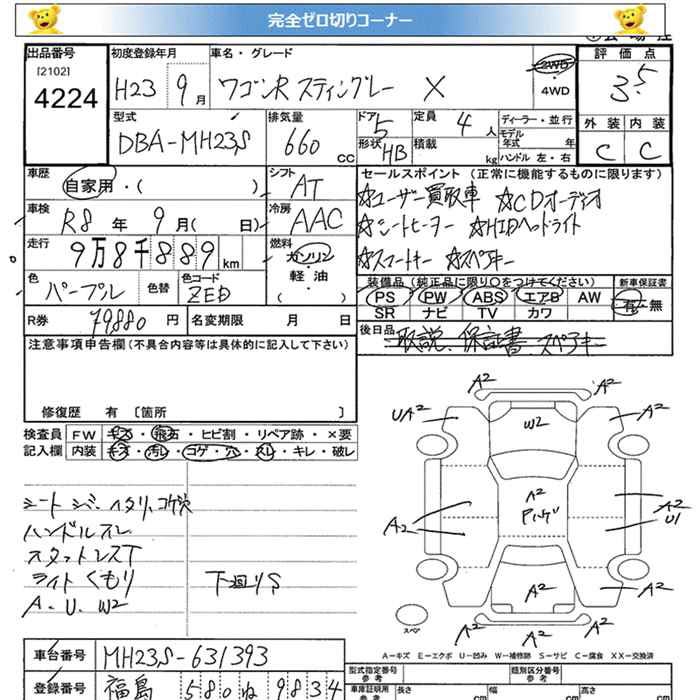 完全ゼロ切りコーナー
出品番号
[2102]
4224
初度登録年月
H23 9月
車名・グレード
ワゴンR スティングレー X
2WD
・
4WD
評価点
3.5
外装 内装
C C
型式
DBA-MH23S
排気量
660 CC
ドア 5
形状 HB
定員 4 人
積載 kg
ディーラー・並行
モデル年式 年式
ハンドル 左・右
車歴
自家用・( )
シフト
AT
車検
R8 年 9 月( 日)
冷房
AAC
走行
9万8千889 km
燃料
ガソリン
・
軽・油
( )
色
パープル
色替
色コード
ZED
R券 79880 円
名変期限 月 日
セールスポイント (正常に機能するものに限ります)
☆ユーザー買取車 ☆CDオーディオ
☆シートヒーター ☆HIDヘッドライト
☆スマートキー ☆スペアキー
装備品(純正品に限り○をつけてください)
PS PW ABS エアB AW
SR ナビ TV カワ
新車保証書
有・無
後日品
取説、保証書 スペアキー
注意事項申告欄(不具合内容等は具体的に記入して下さい)
修復歴 有 〔箇所 〕
検査員記入欄
FW キズ・飛石・ヒビ割・リペア跡・×要
内装 キズ・汚レ・コゲ・穴・スレ・キレ・破レ
ハンドルスレ
ライトくもり 下廻りS
A. U. W2
A2 A2
UA2 W2 A2
A2
A2 A2
U1
A2 A2 A2
スペア
A-キズ E-エクボ U-凹み W-補修跡 S-サビ C-腐食 XX-交換済
車台番号 MH23S-631393
登録番号 福島 580 ね 9834
型式指定番号 参考
類別区分番号 参考
車庫証明用 参考 長さ cm 幅 cm 高さ cm